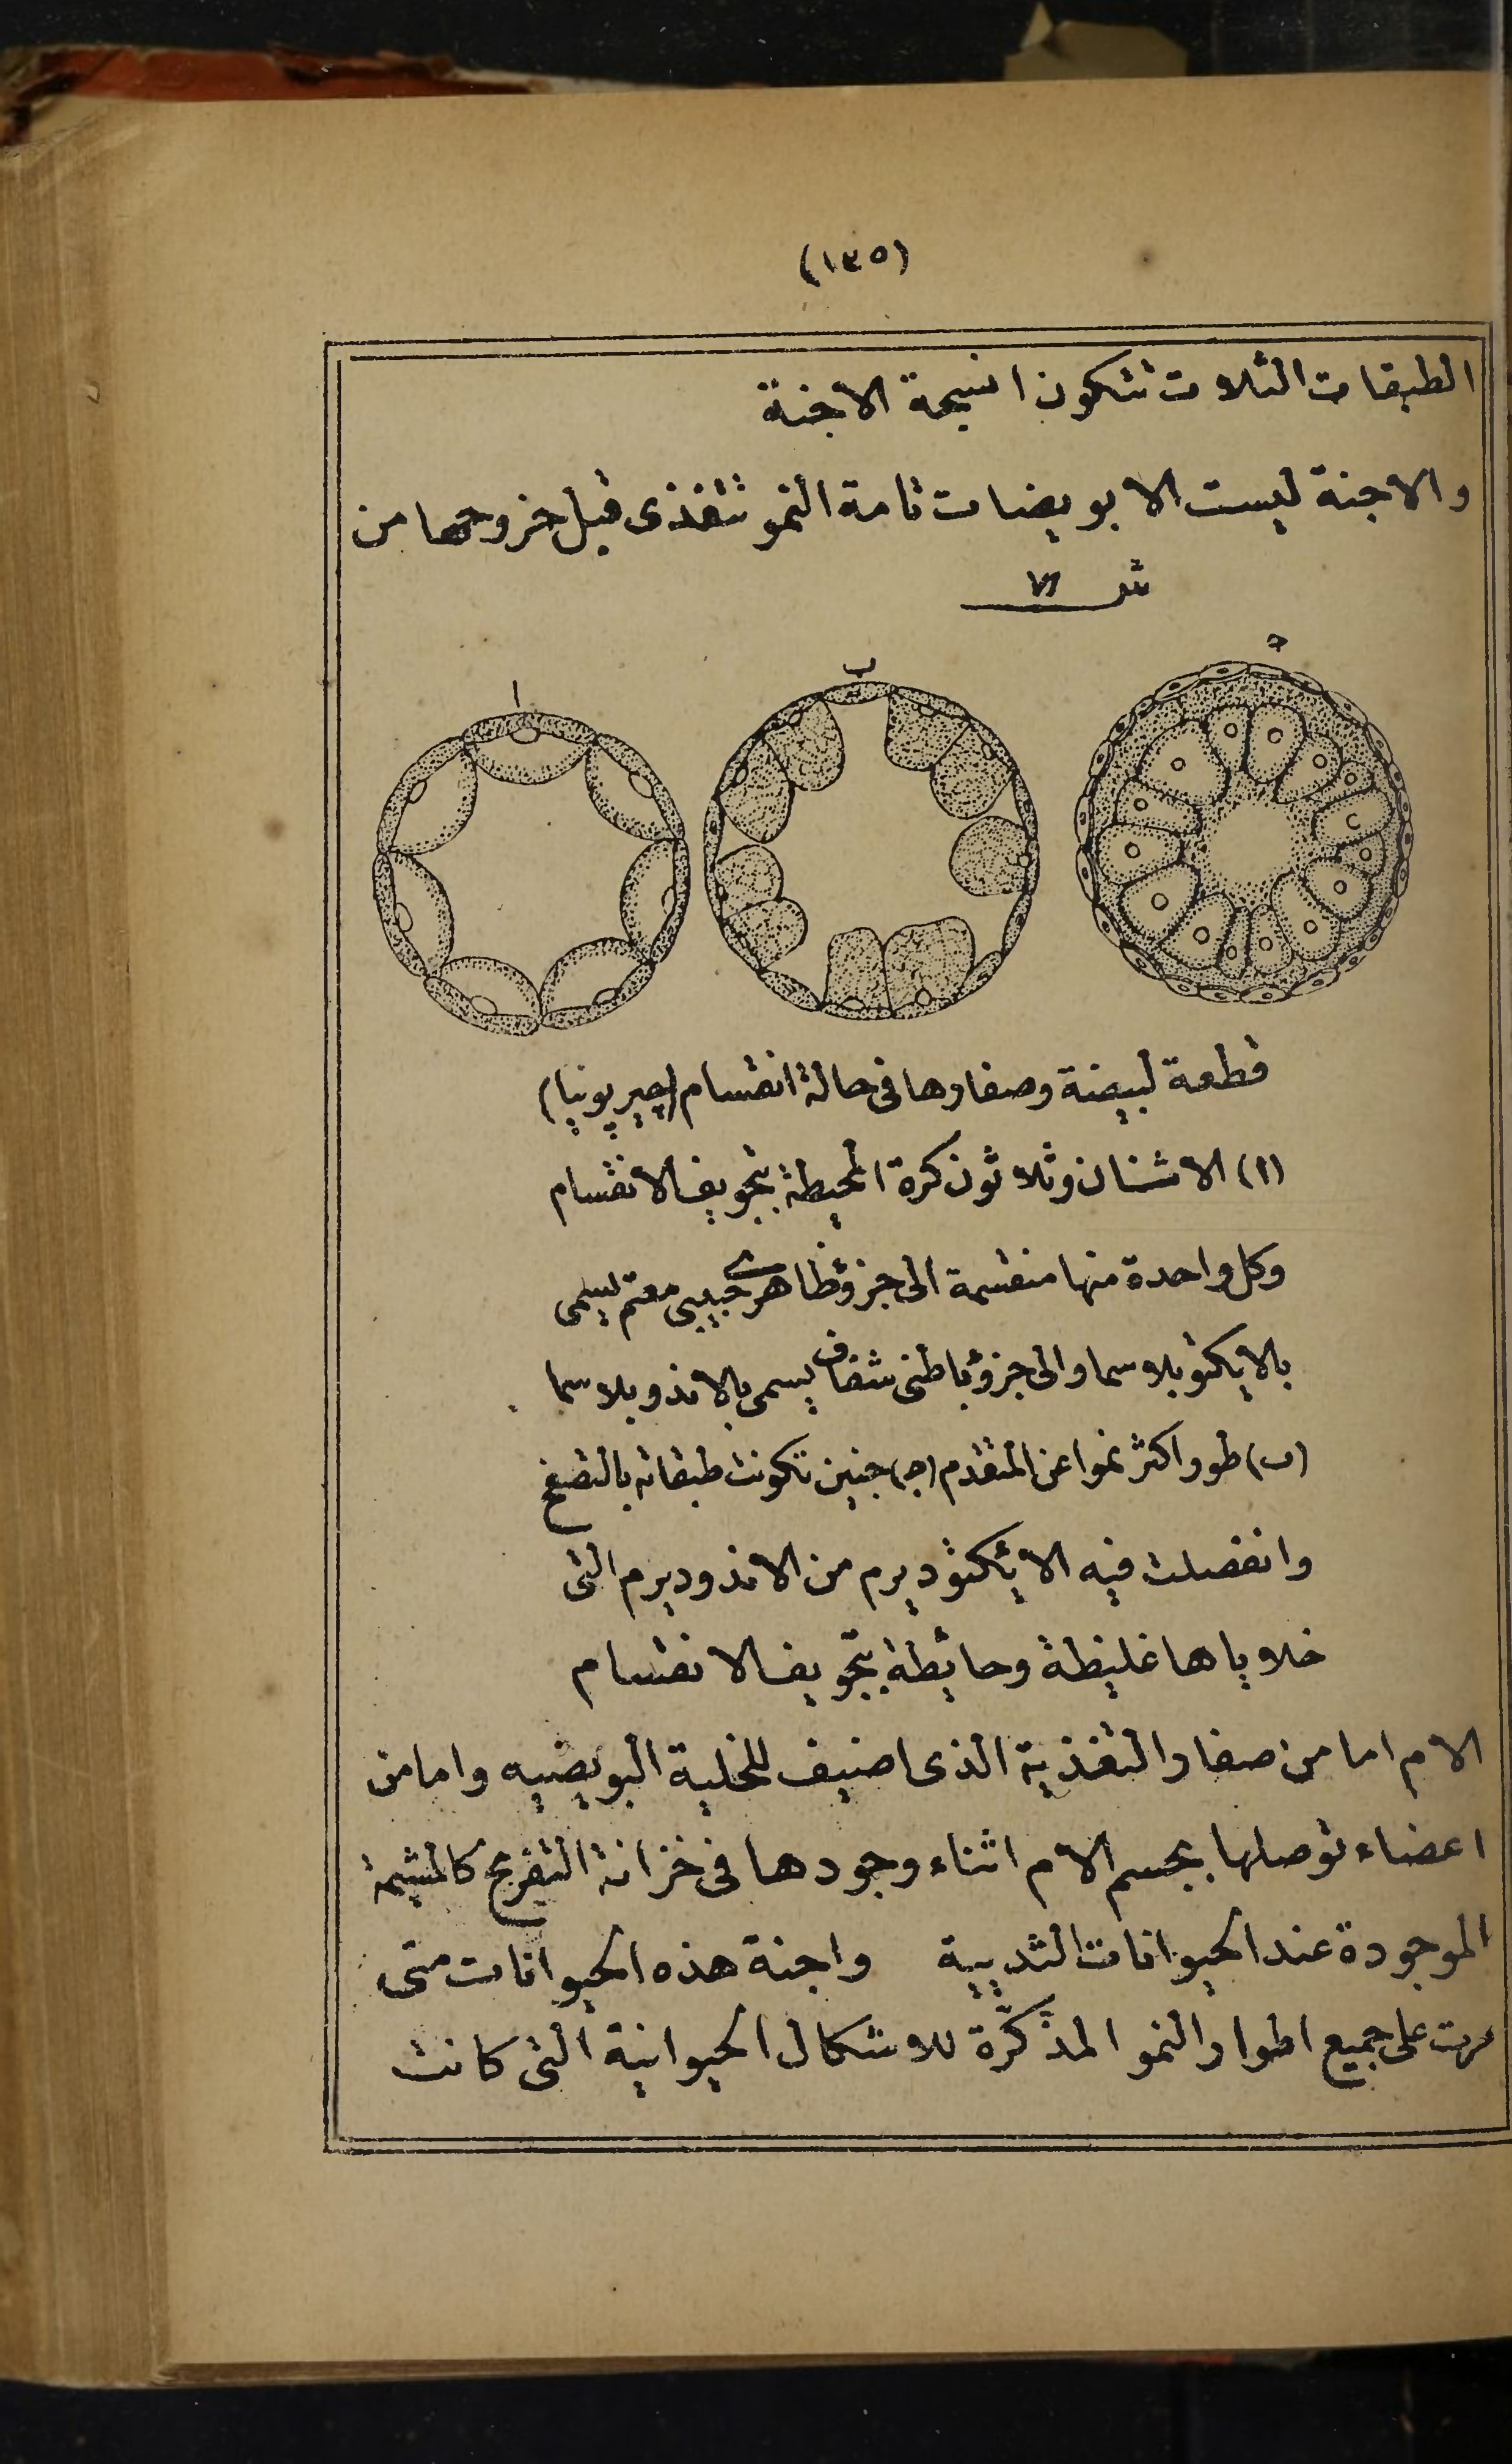 (١٣٥)
الطبقات الثلاث تتكون انسجة الاجنة
والاجنة ليست الا بويضات تامة النمو تتغذى قبل خروجها من
شـ ٧١
ا ب جـ
قطعة لبيضة وصفارها فى حالة انقسام (جيريونيا)
(ا) الاثنان وثلاثون كرة المحيطة بتجويف الانقسام
وكل واحدة منها منقسمة الى جزؤ ظاهرى حبيبى معتم يسمى
بالايكتوبلاسما والى جزؤ باطنى شفاف يسمى بالاندوبلاسما
(ب) طور اكثر نموا عن المتقدم (جـ) جنين تكونت طبقاته بالتصفح
وانفصلت فيه الايكتوديرم من الاندوديرم التى
خلاياها غليظة وحايطة بتجويف الانقسام
الام اما من صفار التغذية الذى اضيف للخلية البويضيه واما من
اعضاء توصلها بجسم الام اثناء وجودها فى خزانة التفريخ كالمشيمة
الموجودة عند الحيوانات الثديية واجنة هذه الحيوانات متى
مرت على جميع اطوار النمو المذكّرة للاشكال الحيوانية التى كانت